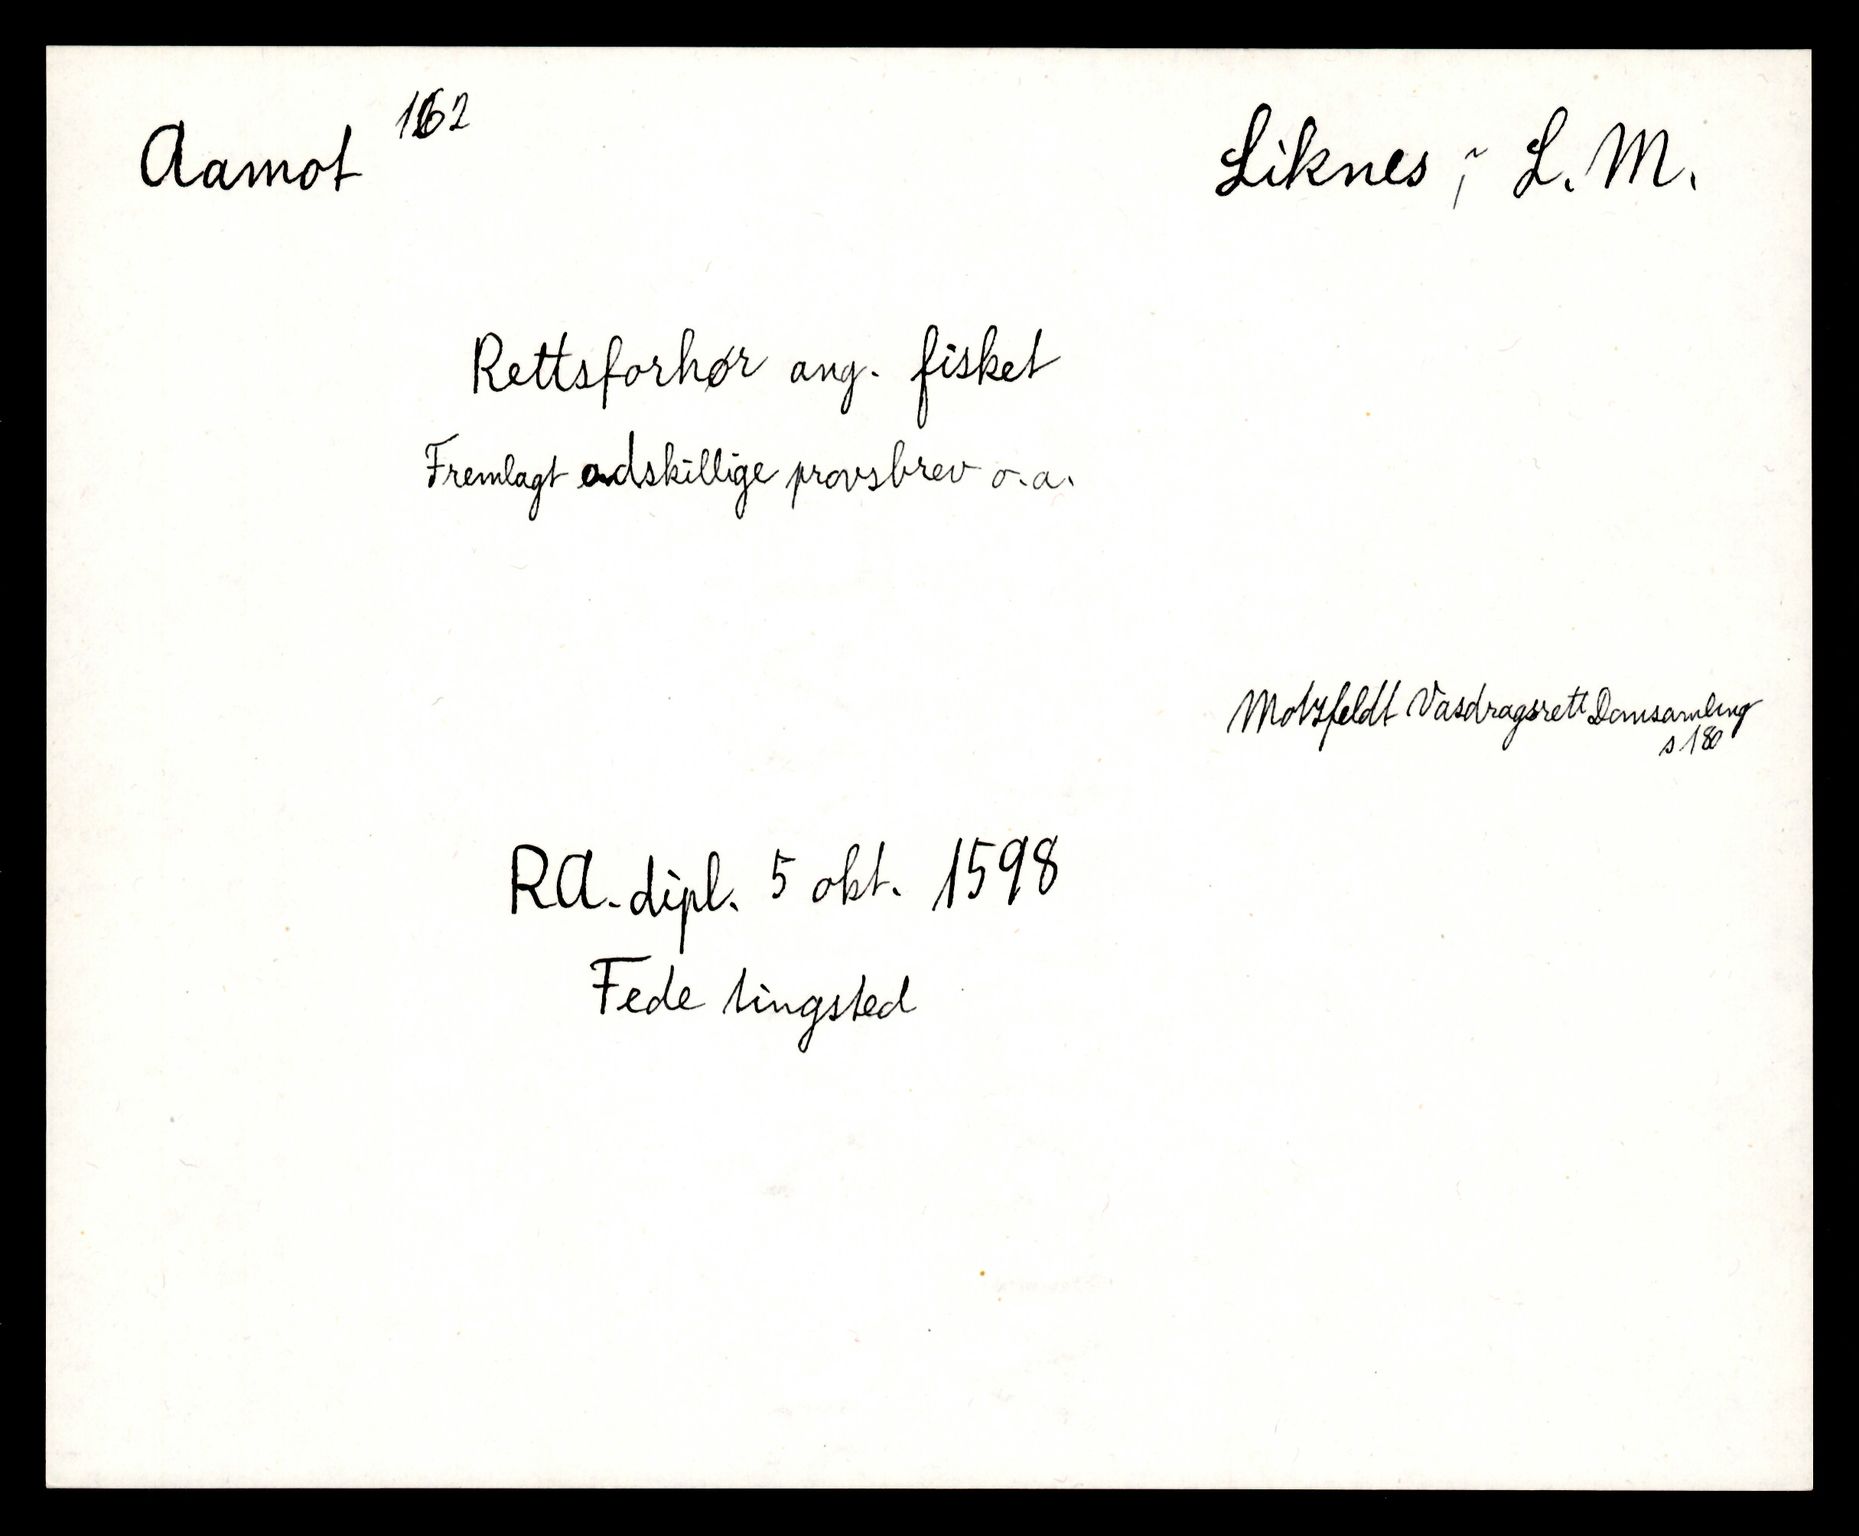 Aamot 162
Liknes, L. M.
Rettsforhør ang. fisket
Fremlagt adskillige provsbrev o.a.
Motzfeldt Vasdragsrett Domsamling
s 180
RA. dipl. 5 okt. 1598
Fede tingsted